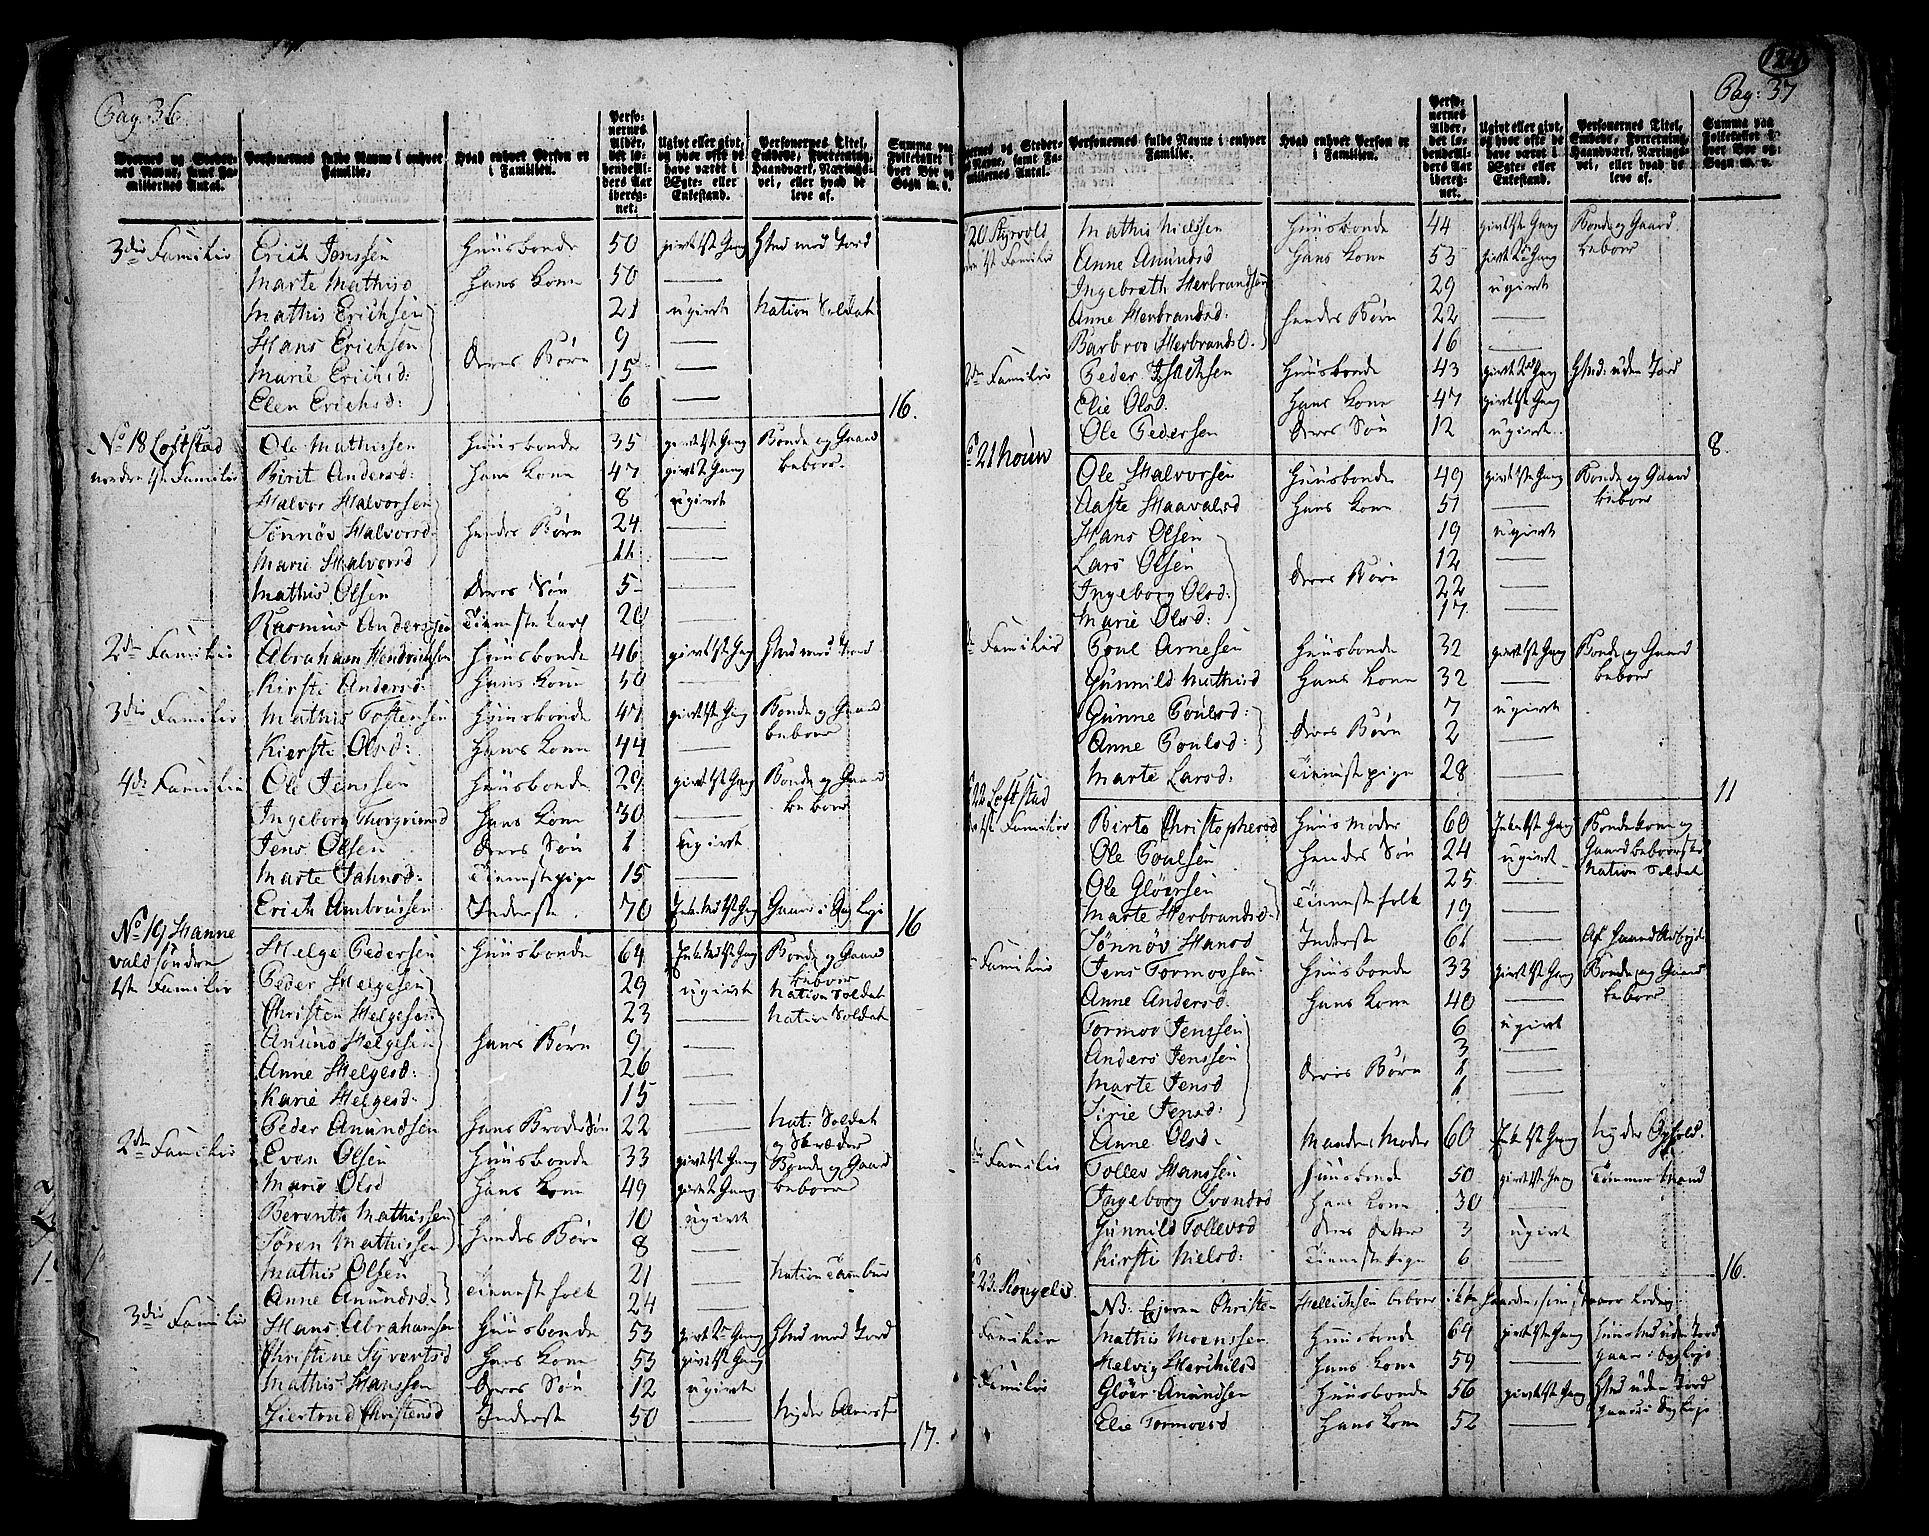 Pag: 36
Gaardernes og Stedernes Navne, samt Familiernes Antal.
Personernes fulde Navne i enhver Familie.
Hvad enhver Person er i Familien.
Personernes Alder, det løbende Alders Aar iberegnet.
Ugivt eller givt, og hvor ofte de have været i Ægte- eller Enkestand.
Personernes Titel, Embede, Forretning, Haandværk, Næringsvei, eller hvad de leve af.
Summa paa Folketallet i
3die Familie Erich Jenssen Huusbonde 50 givt 1ste Gang Huusmd med Jord
Marte Mathisd Hans Kone 50 —
Mathis Erichsen 21 ugivt Nation Soldat
Hans Erichsen 9 —
Marie Erichsd: Deres Børn 15 —
Elen Erichsd: 6 — 16.
No 18 Loftstad Ole Mathissen Huusbonde 35 givt 1ste Gang Bonde og Gaard
nordre 1ste Familie Birit Andersd: Hans Kone 47 givt 2de Gang beboer.
Halvor Halvorsen 8 ugivt
Sønnøv Halvorsd Hendes Børn 24 —
Marie Halvorsd 11 —
Mathis Olsen Deres Søn 5 —
Rasmus Anderssen Tienestekarl 20 —
2den Familie Abraham Hendrichsen Huusbonde 46 givt 1ste Gang Huusmd med Jord
Kirsti Andersd: Hans Kone 50 —
3die Familie Mathis Tostensen Huusbonde 47 givt 1ste Gang Bonde og Gaard
Kiersti Olsd: Hans Kone 44 — beboer
4de Familie Ole Jenssen Huusbonde 29 givt 1ste Gang Bonde og Gaard
Ingeborg Thorgrimsd Hans Kone 30 — beboer
Jens Olsen Deres Søn 1 Ugivt
Marte Jahnsd: Tienestepige 15 —
Erich Ambrussen Inderste 70 Enkemd 1ste Gang Gaaer i Læg 16
No 19 Hanne Helge Pedersen Huusbonde 64 Enkemd 1ste Gang Bonde og Gaard
vald søndre Peder Helgesen 29 ugivt beboer Nation Soldat
1ste Familie Christen Helgesen 23 — Nation Soldat
Amund Helgesen Hans Børn 9 —
Anne Helgesd: 26 —
Karie Helgesd: 15 —
Peder Amundsen Hans Broder Søn 22 — Nat: Soldat og Skræder
2den Familie Even Olsen Huusbonde 33 givt 1ste Gang Bonde og Gaard
Marie Olsd Hans Kone 49 givt 2de Gang beboer
Berenth Mathissen 10 ugivt
Søren Mathissen Hendes Børn 8 —
Mathis Olsen 21 — Nation Tambur
Anne Amundsd: Tienestefolk 24 —
3die Familie Hans Abrahamsen Huusbonde 53 givt 2den Gang Huusmd med Jord
Christine Syvertsd Hans Kone 53 givt 1ste Gang
Mathis Hanssen Deres Søn 12 ugivt
Giertrud Christensd Inderste 50 — Nyder Almisse
17.
124
Pag: 37
Gaardernes og Stedernes Navne, samt Familiernes Antal.
Personernes fulde Navne i enhver Familie.
Hvad enhver Person er i Familien.
Personernes Alder, det løbende Alders Aar iberegnet.
Ugivt eller givt, og hvor ofte de have været i Ægte- eller Enkestand.
Personernes Titel, Embede, Haandværk, Næringsvei, eller hvad de leve af.
Summa paa Folketallet i hver Bye og Sogn m. v.
20 Styrvold Mathis Nielssen Huusbonde 44 givt 1ste Gang Bonde og Gaard
1ste Familie Anne Amundsd Hans Kone 53 givt 2den Gang beboer
Ingebreth Herbrandsen 29 ugivt
Anne Herbrandsd: Hendes Børn 22 —
Barbroe Herbrandsd. 16 —
2den Familie Peder Isachsen Huusbonde 43 givt 2den Gang Huusmd: uden Jord
Elie Olsd. Hans Kone 47 givt 1ste Gang
Ole Pedersen Deres Søn 12 ugivt 8.
No 21 Houen Ole Halvorsen Huusbonde 49 givt 1ste Gang Bonde og Gaard
Aaste Haavalsd Hans Kone 51 — beboer
Hans Olsen 19 ugivt
Lars Olsen 12 —
Ingeborg Olsd: Deres Børn 22 —
Marie Olsd: 17 —
Familie Poul Arnesen Huusbonde 32 givt 1ste Gang Bonde og Gaard
Gunnild Mathisd Hans Kone 32 — beboer
Gunne Poulsd: 7 ugivt
Anne Poulsd: Deres Børn 2 —
Marte Larsd: Tienestepige 28 — 11
22 Loftstad
1ste Familie Birte Christophersd Huusmoder 60 Enke 1ste Gang Bondekone og
Ole Poulsen Hendes Søn 24 ugivt Gaardbeboerske Nation Soldat
Ole Gløersen 25 —
Marte Herbrandsd. Tienestefolk 19 —
Sønnøv Hansd Inderste 61 — Af Haand Arbejde
Familie Jens Tormoesen Huusbonde 33 givt 1ste Gang Bonde og Gaard
Anne Andersd. Hans Kone 40 — beboer
Tormoe Jenssen 6 ugivt
Anders Jenssen 3 —
Marte Jensd Deres Børn 1 —
Sirie Jensd: 1 —
Anne Olsd. Mandens Moder 60 Enke 1ste Gang Nyder Ophold.
Familie Tollev Hanssen Huusbonde 50 givt 1ste Gang Tømmer Mand
Ingeborg Svendsd Hans Kone 30 —
Gunnild Tollevsd Deres Datter 3 ugivt
Kirsti Nielsd: Tienestepige 6 — 16.
23. Rongelis NB: Ejeren Christen Hellichsen beboer ikke Gaarden
Familie Mathis Moenssen Huusbonde 64 givt 1ste Gang Huusmd uden Jord
Helvig Herchilsd Hans Kone 59 —
Familie Gløer Amundsen Huusbonde 56 givt 1ste Gang Huusmd uden Jord
Elie Tormoesd Hans Kone 52 —